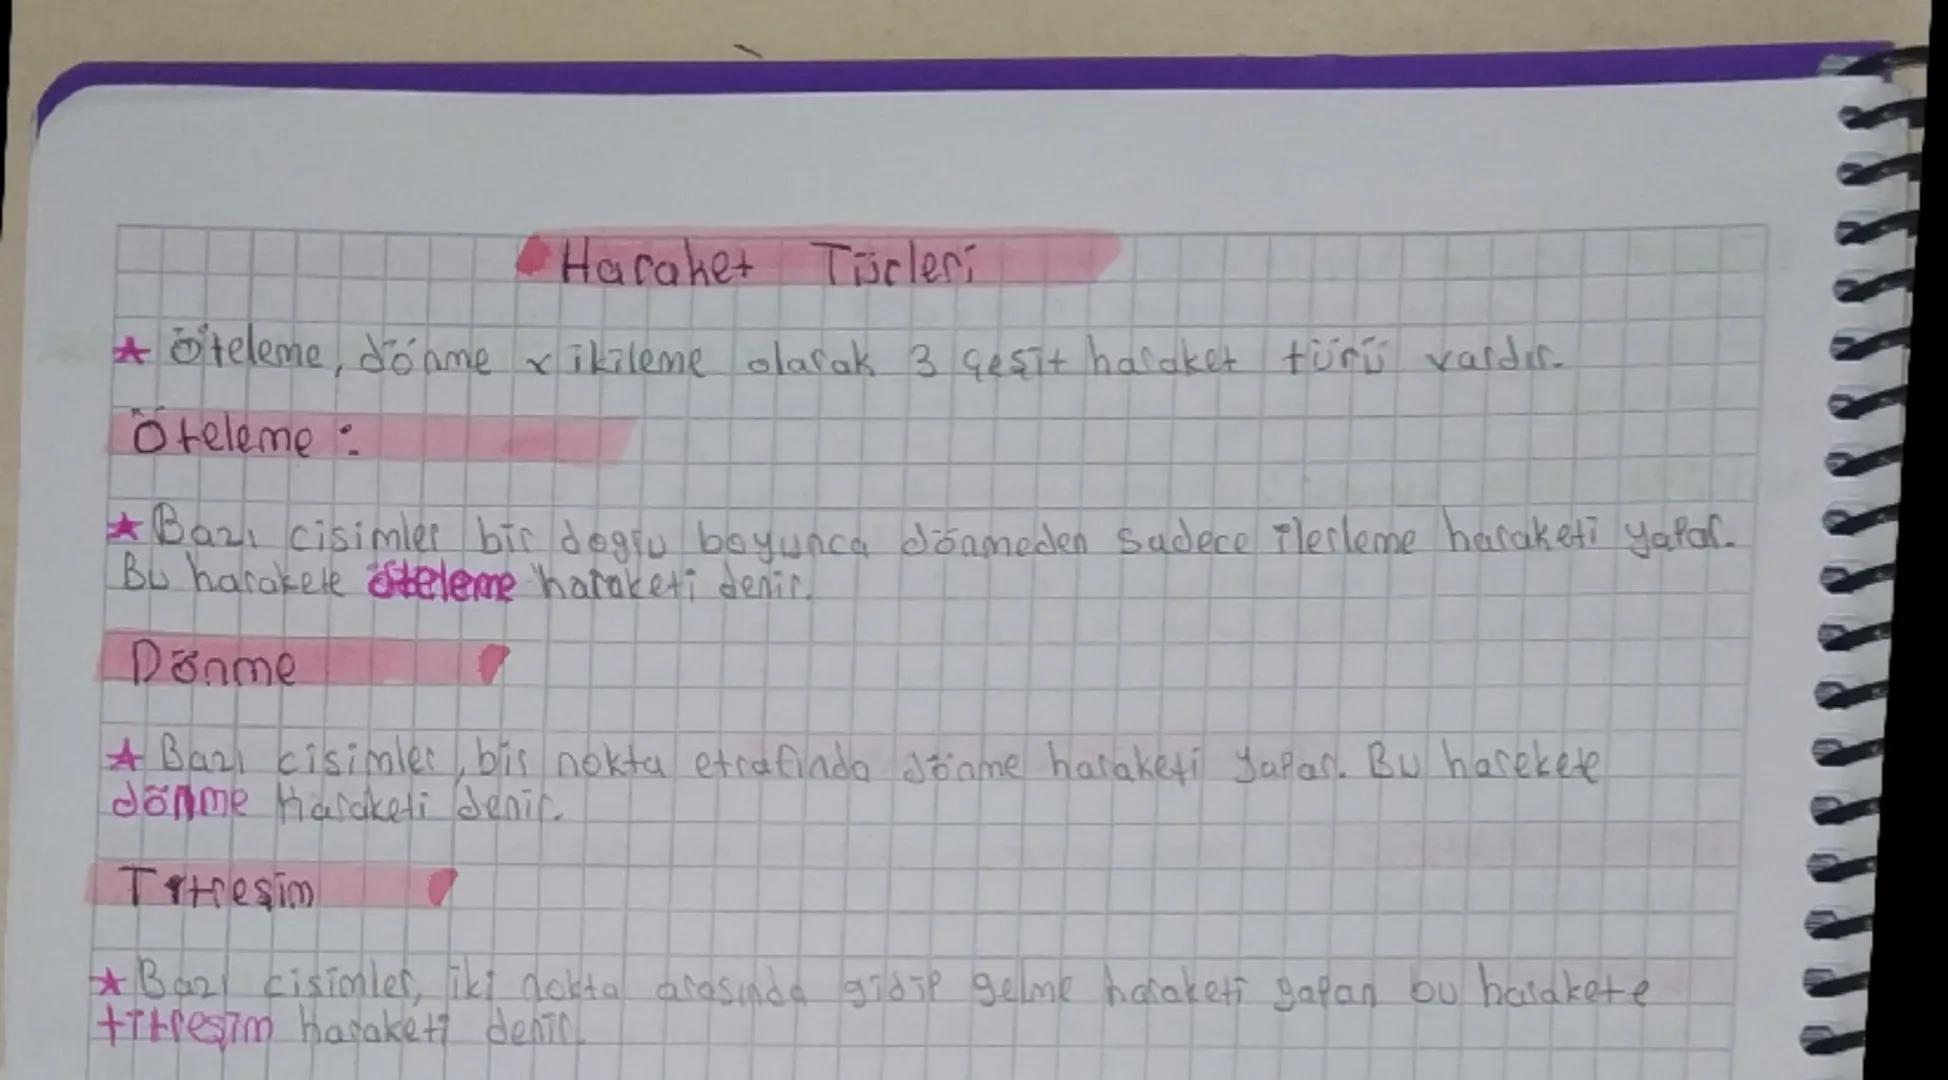 Haraket Türleri
★ Öteleme, dönme v ikileme olarak 3 çeşit haraket türü vardır.
Öteleme :
★ Bazı cisimler bir doğru boyunca dönmeden sadece ilerleme haraketi yapar.
Bu harakete öteleme haraketi denir.
Dönme
★ Bazı cisimler, bir nokta etrafında dönme haraketi yapar. Bu harekete
dönme Haraketi denir.
Titreşim
★ Bazı cisimler, iki nokta arasında gidip gelme haraketi yapan bu harakete
titreşim haraketi denir.